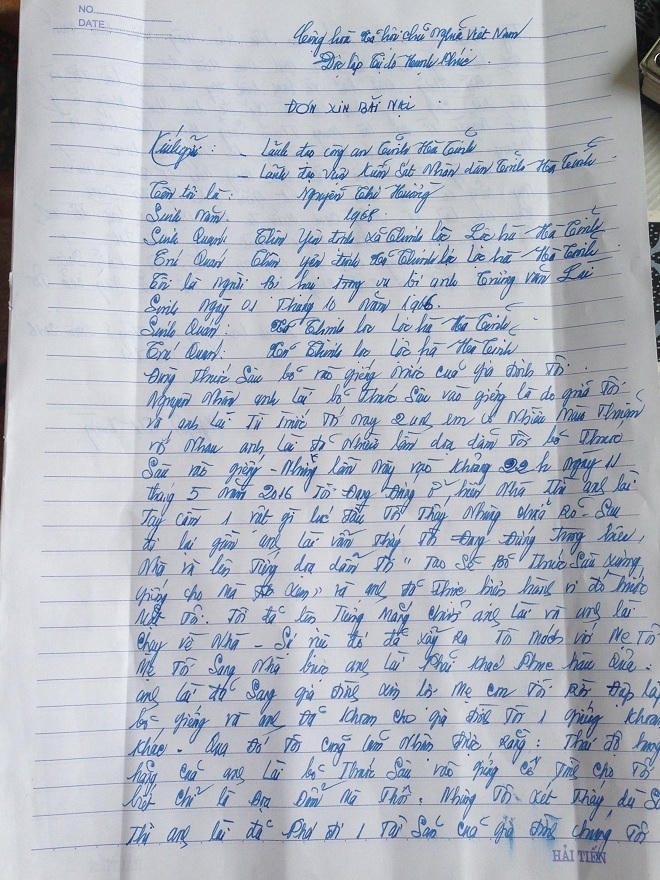 NO.
DATE
Cộng hòa xã hội chủ nghĩa Việt Nam
Độc lập Tự do Hạnh Phúc.
ĐƠN XIN BÃI NẠI
Kính gửi: - Lãnh đạo công an Tỉnh Hà Tĩnh
- Lãnh đạo viện Kiểm Sát Nhân dân Tỉnh Hà Tĩnh.
Tên tôi là: Nguyễn Thị Hương
Sinh năm. 1968
Sinh Quán: Thôn Yên Định Xã Thịnh lộc Lộc hà Hà Tĩnh
Trú Quán Thôn yên Định Xã Thịnh lộc Lộc hà Hà Tĩnh
Tôi là người bị hại trong vụ bị anh Trương văn Lai
Sinh ngày 01 Tháng 10 năm 1966
Sinh Quán: Xã Thịnh lộc Lộc hà Hà Tĩnh
Trú Quán: Xã Thịnh lộc Lộc hà Hà Tĩnh
Dùng Thuốc Sâu bỏ vào giếng nước của gia đình Tôi
Nguyên Nhân anh Lai bỏ Thuốc Sâu vào giếng là do giữa Tôi
và anh Lai Từ Trước Tới nay 2 anh em có Nhiều Mâu Thuẫn
với Nhau anh Lai đã Nhiều lần dọa dẫm Tôi bỏ Thuốc
Sâu vào giếng - Nhưng lần này vào khoảng 22 h ngày 11
tháng 5 năm 2016 Tôi Đang Đứng ở hiên Nhà Thì anh lai
Tay cầm 1 vật gì lúc đầu Tôi Thấy Nhưng chưa Rõ Sau
đó lại gần anh Lai vẫn Thấy Tôi Đang Đứng trong hiên
Nhà và lên Tiếng dọa dẫm Tôi " Tao Sẽ Bỏ Thuốc Sâu xuống
giếng cho Mà Xem" và anh đã Thực hiện hành vi đó trước
Mặt Tôi. Tôi đã lên Tiếng Mắng chửi anh Lai và anh lai
chạy về Nhà - Sự việc đó đã xảy ra Tôi mách với Mẹ Tôi
Mẹ Tôi Sang Nhà bảo anh Lai Phải khắc Phục hậu Quả.
anh lai đã Sang gia đình xin lỗi Mẹ con Tôi Rồi Đắp lấp
bỏ giếng và anh đã khoan cho gia đình Tôi 1 giếng khoan
khác. Qua Đó Tôi cũng Nhận Được Rằng: Thái độ
hăng của anh Lai bỏ Thuốc Sâu vào giếng cố Tình cho Tôi
biết chỉ là Mà Thôi. Nhưng Tôi xét Thấy dù S
Thì anh lai đã Phá đi 1 Tài Sản của gia đình chúng Tôi
HẢI TIẾN